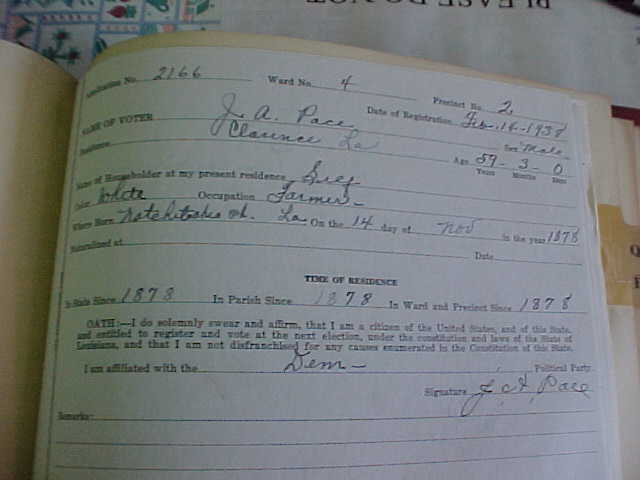 PLEASE DO NOT
Application No. 2166 Ward No. 4 Precinct No. 2
NAME OF VOTER J. A. Pace Date of Registration Feb-14-1938
Residence Clarence La Sex Male
Age 59-3-0
Years Months Days
Name of Householder at my present residence Self
Color White Occupation Farmer
Where Born Natchitoches La On the 14 day of Nov in the year 1878
Naturalized at Date
TIME OF RESIDENCE
In State Since 1878 In Parish Since 1878 In Ward and Precinct Since 1878
OATH:—I do solemnly swear and affirm, that I am a citizen of the United States, and of this State,
and entitled to register and vote at the next election, under the constitution and laws of the State of
Louisiana, and that I am not disfranchised for any causes enumerated in the Constitution of this State.
I am affiliated with the Dem- Political Party.
Signature J. A. Pace
Remarks: